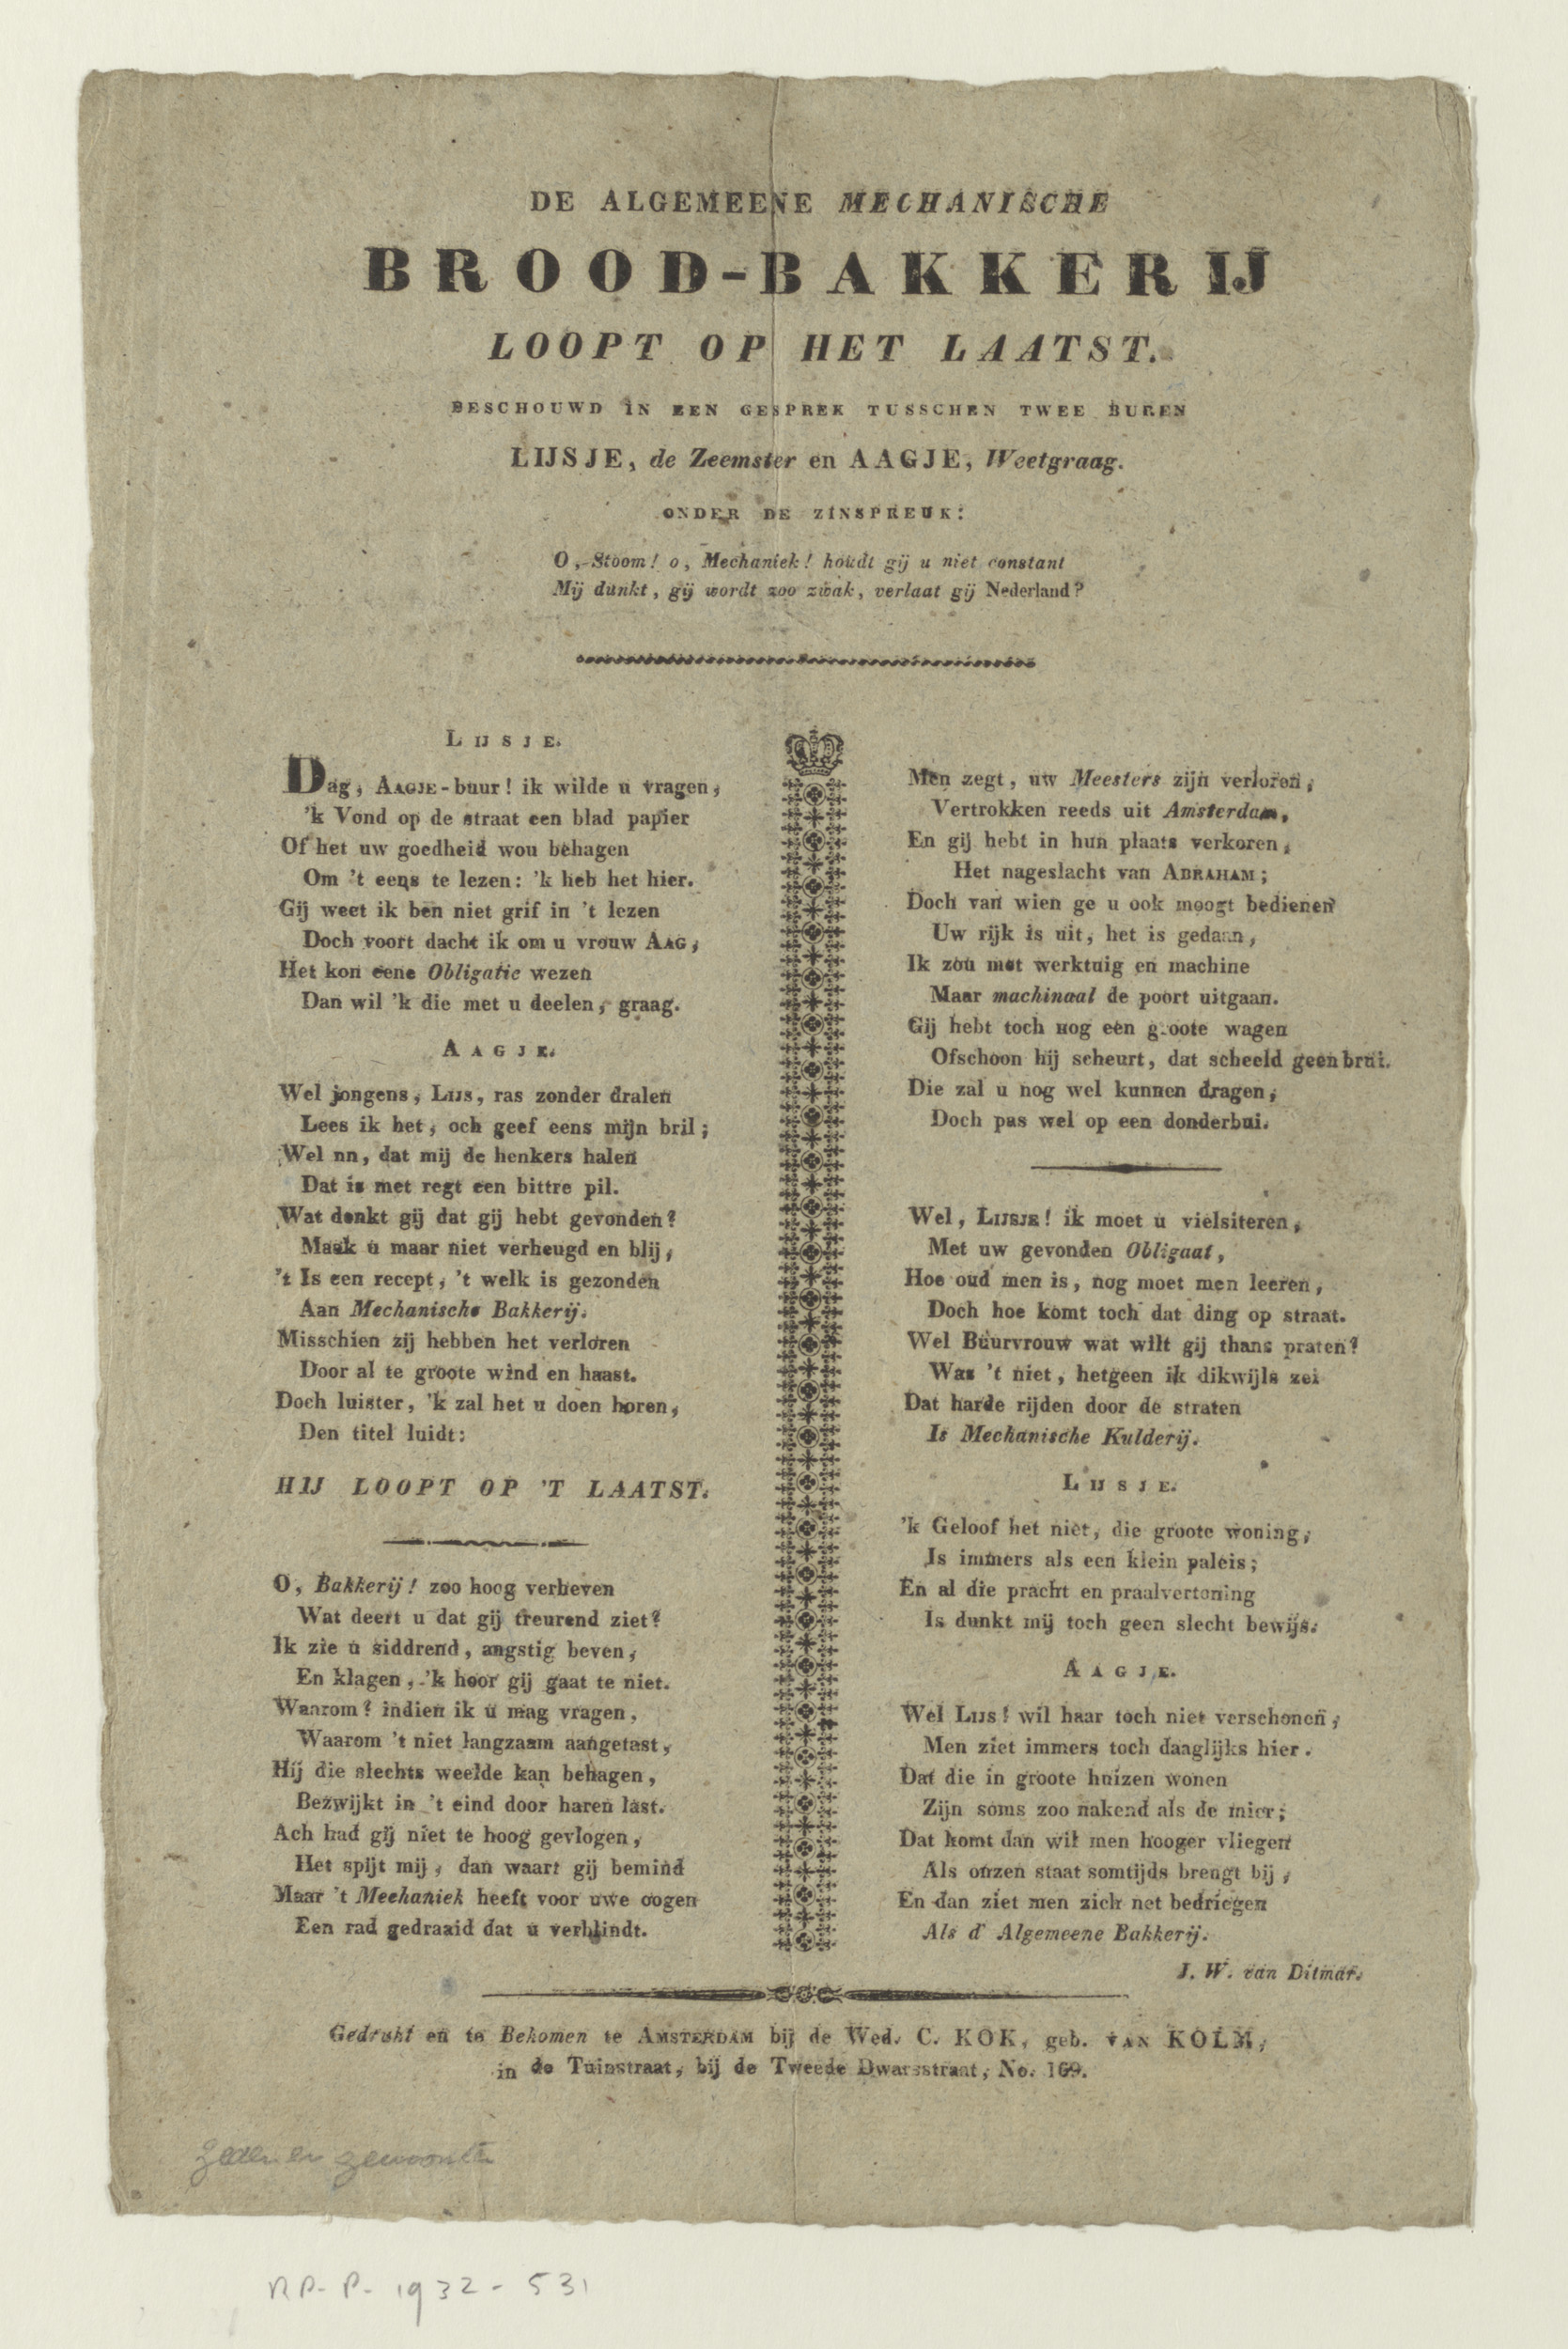 DE ALGEMEENE MECHANISCHE
BROOD-BAKKERIJ
LOOPT OP HET LAATST.
BESCHOUWD IN EEN GESPREK TUSSCHEN TWEE BUREN
LIJSJE, de Zeemster en AAGJE, Weetgraag.
ONDER DE ZINSPREUK:
O, Stoom! o, Mechaniek! houdt gij u niet constant
Mij dunkt, gij wordt zoo zwak, verlaat gij Nederland?
LIJSJE.
Dag, AAGJE-buur! ik wilde u vragen,
'k Vond op de straat een blad papier
Of het uw goedheid wou behagen
Om 't eens te lezen: 'k heb het hier.
Gij weet ik ben niet grif in 't lezen
Doch voort dacht ik om u vrouw AAG,
Het kon eene Obligatie wezen
Dan wil 'k die met u deelen, graag.
AAGJE.
Wel jongens, LIJS, ras zonder dralen
Lees ik het, och geef eens mijn bril;
Wel nn, dat mij de henkers halen
Dat is met regt een bittre pil.
Wat denkt gij dat gij hebt gevonden?
Maak u maar niet verheugd en blij,
't Is een recept, 't welk is gezonden
Aan Mechanische Bakkerij.
Misschien zij hebben het verloren
Door al te groote wind en haast.
Doch luister, 'k zal het u doen horen,
Den titel luidt:
HIJ LOOPT OP 'T LAATST.
O, Bakkerij! zoo hoog verheven
Wat deert u dat gij treurend ziet?
Ik zie u siddrend, angstig beven,
En klagen, 'k hoor gij gaat te niet.
Waarom? indien ik u mag vragen,
Waarom 't niet langzaam aangetast,
Hij die slechts weelde kan behagen,
Bezwijkt in 't eind door haren last.
Ach had gij niet te hoog gevlogen,
Het spijt mij, dan waart gij bemind
Maar 't Mechaniek heeft voor uwe oogen
Een rad gedraaid dat u verblindt.
Men zegt, uw Meesters zijn verloren,
Vertrokken reeds uit Amsterdam,
En gij hebt in hun plaats verkoren,
Het nageslacht van ABRAHAM;
Doch van wien ge u ook moogt bedienen
Uw rijk is uit, het is gedaan,
Ik zou met werktuig en machine
Maar machinaal de poort uitgaan.
Gij hebt toch nog een groote wagen
Ofschoon hij scheurt, dat scheeld geen brui.
Die zal u nog wel kunnen dragen,
Doch pas wel op een donderbui.
Wel, LIJSJE! ik moet u vielsiteren,
Met uw gevonden Obligaat,
Hoe oud men is, nog moet men leeren,
Doch hoe komt toch dat ding op straat.
Wel Buurvrouw wat wilt gij thans praten?
Was 't niet, hetgeen ik dikwijls zei
Dat harde rijden door de straten
Is Mechanische Kulderij.
LIJSJE.
'k Geloof het niet, die groote woning,
Is immers als een klein paleis;
En al die pracht en praalvertoning
Is dunkt mij toch geen slecht bewijs.
AAGJE.
Wel LIJS! wil haar toch niet verschonen,
Men ziet immers toch daaglijks hier.
Dat die in groote huizen wonen
Zijn soms zoo nakend als de mier;
Dat komt dan wil men hooger vliegen
Als onzen staat somtijds brengt bij,
En dan ziet men zich net bedriegen
Als d' Algemeene Bakkerij.
J. W. van Ditmar.
Gedrukt en te Bekomen te AMSTERDAM bij de Wed. C. KOK, geb. VAN KOLM,
in de Tuinstraat, bij de Tweede Dwarsstraat, No. 169.
Zeden en gewoonten
RP-P-1932-531